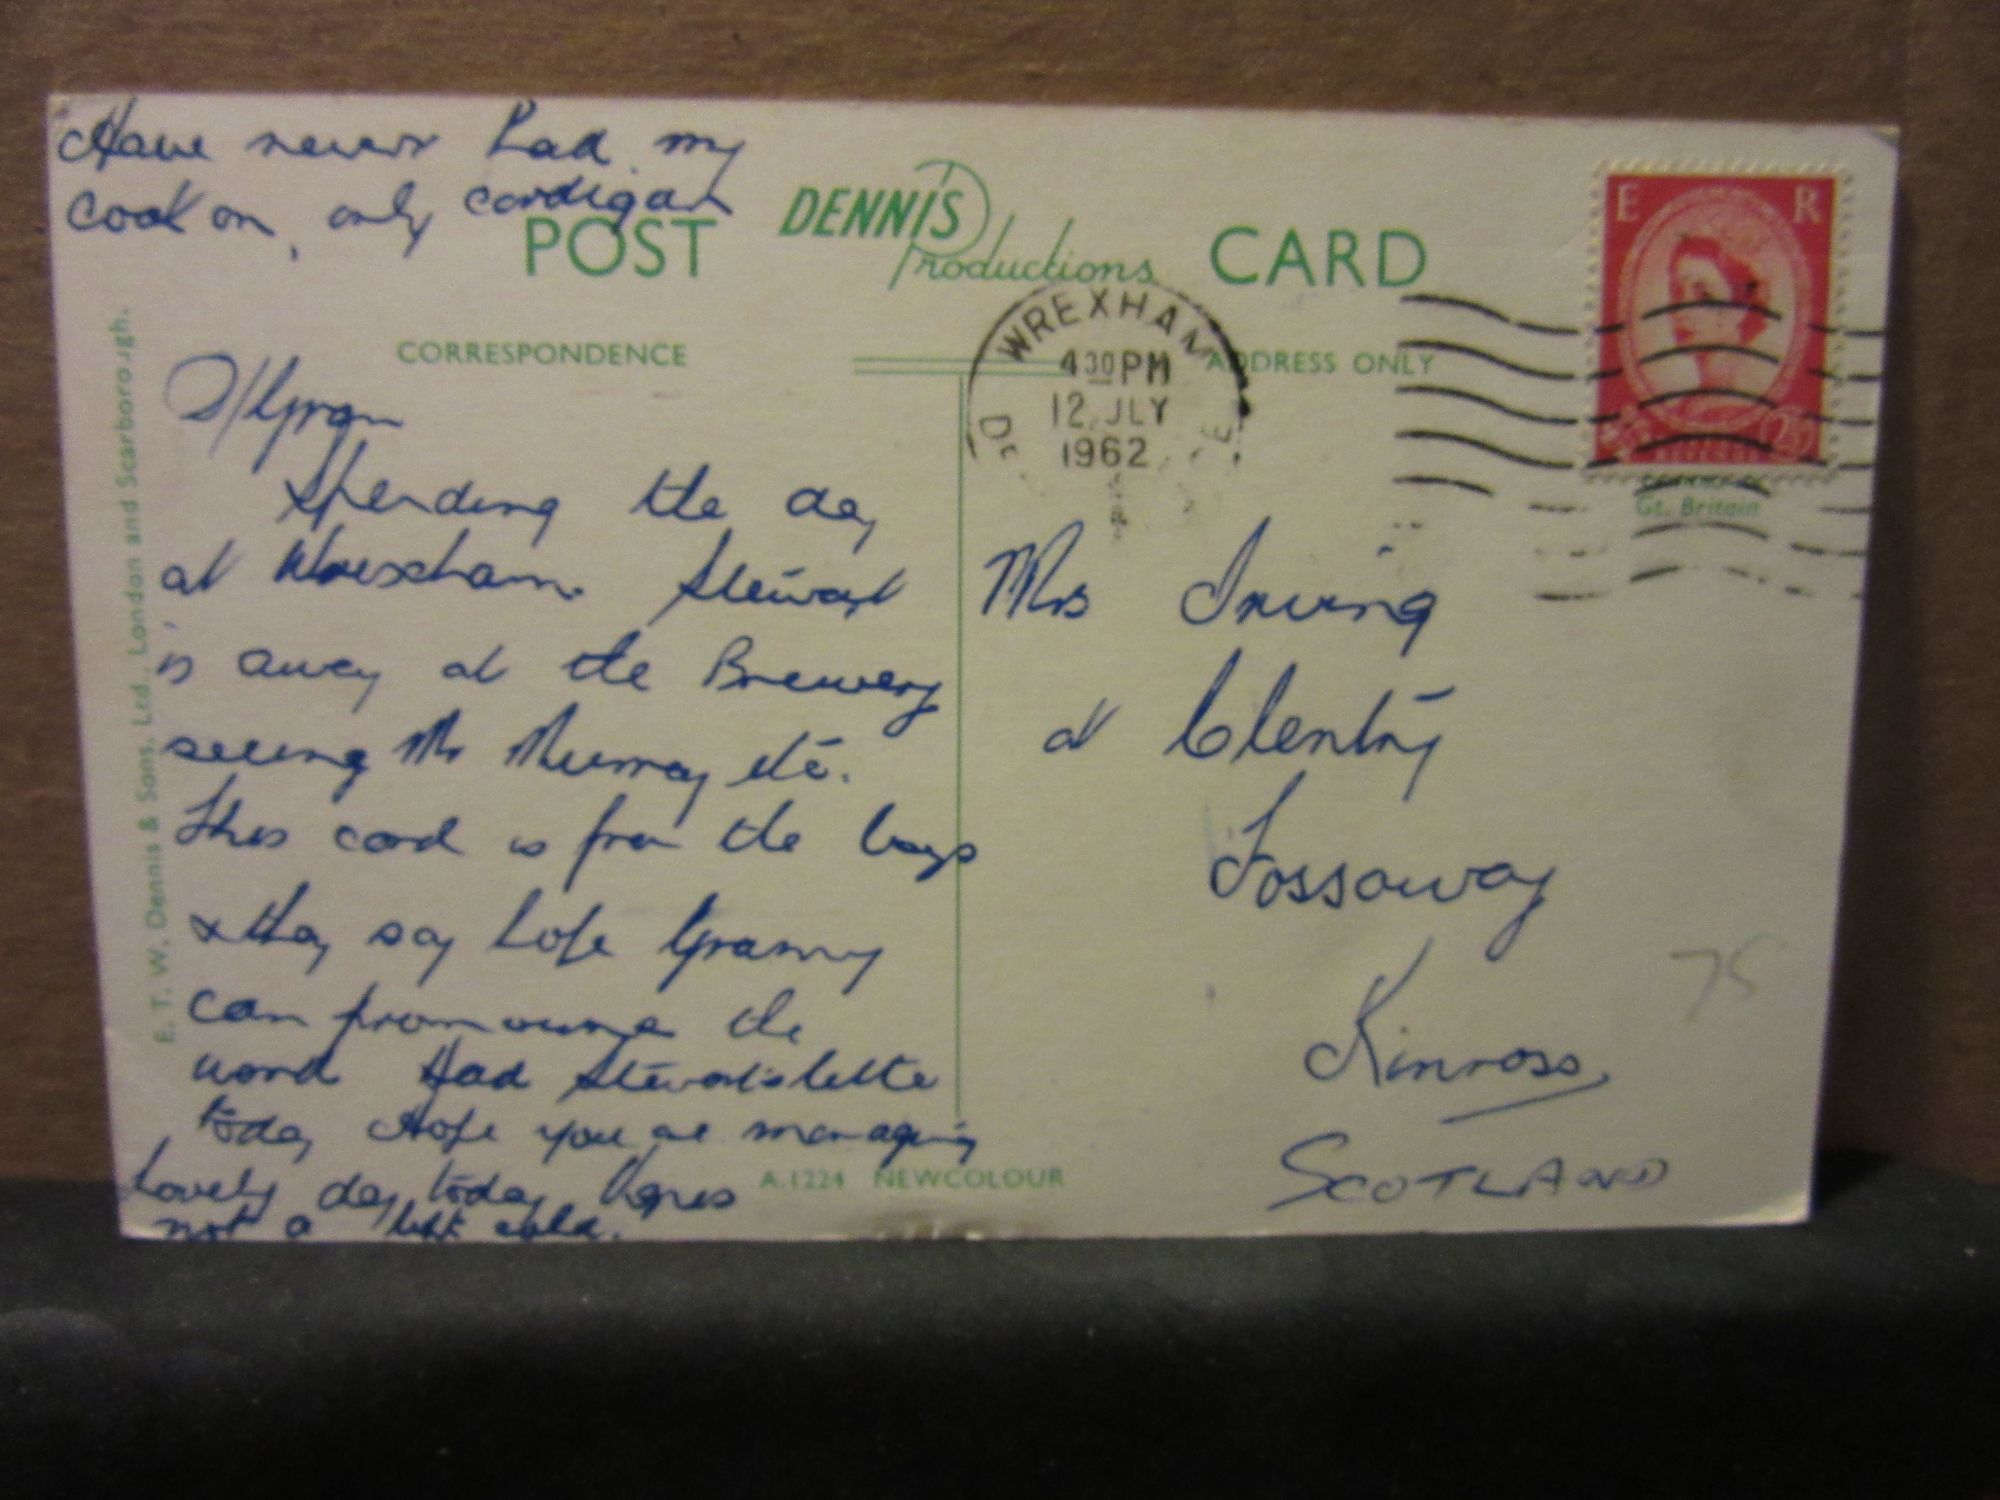 Have never had my
coat on, only cardigan
POST DENNIS Productions CARD
CORRESPONDENCE
ADDRESS ONLY
E. T. W. Dennis & Sons, Ltd., London and Scarborough.
D/Gran
Spending the day
at Wrexham. Stewart
is away at the Brewery
seeing Mr Murray etc.
This card is from the boys
& they say hope Granny
can pronounce the
word Had Stewart's letter
today Hope you are managing
Lovely day today
not a bit cold.
WREXHAM
4 30 PM
12 JLY
1962
E R
Gt. Britain
Mrs Irving
at Clentry
Fossoway
Kinross
SCOTLAND
75
A.1224 NEWCOLOUR